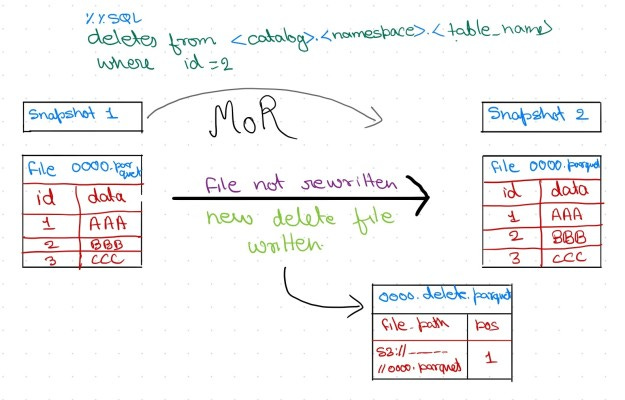 %%SQL
deletes from <catalog>.<namespace>.<table_name>
where id=2
Snapshot 1
MoR
Snapshot 2
File 0000.parquet
id data
1 AAA
2 BBB
3 CCC
File not rewritten
new delete file
written.
File 0000.parquet
id data
1 AAA
2 BBB
3 CCC
0000.delete.parquet
file_path pos
S3://-----
//0000.parquet 1